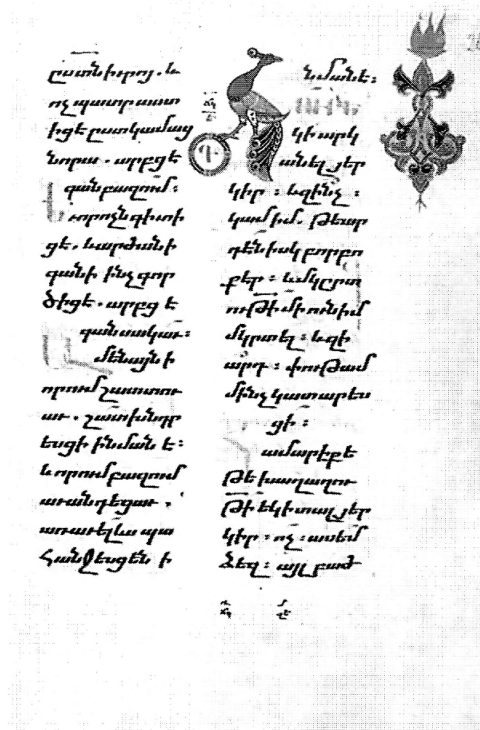 ըստ նխրոյ. և
ոչ պատրաստ
իցէ ըստ կամաց
նորա. արբցէ
գան բազում:
որոչն գիտի
ցէ. և արժանի
գանի ինչ գոր
ծիցէ. արբց է
գան սակաւ:
մենայն ի
որում շատ տու
աւ. շատ խնդր
եսցի ինմանէ:
և որում բազում
աւանդեցաւ.
առաւել ևս պա
հանջեսցեն ի
նմանէ:
կի արկ
անել յեր
կիր: և զինչ:
կամիմ. թե ար
դէն իսկ բորբո
քեր: և մկըրտ
ութի մի ունիմ
մկրտել: և զի
արդ: փութամ
մինչ կատարես
ցի:
ամարիքե
թե խաղաղու
թի եկի տալ յեր
կիր: ոչ: ասեմ
ձեզ: այլ բաժ